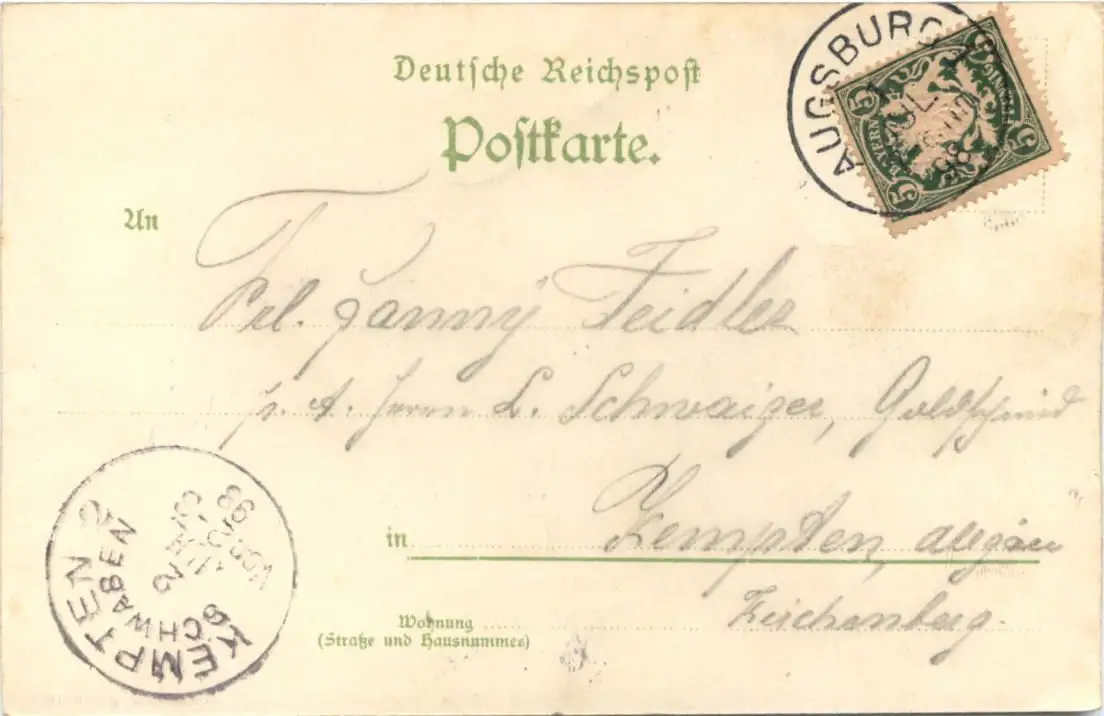 Deutsche Reichspost
Postkarte.
AUGSBURG
JUL
98
BAYERN
5 5 5
An
Frl. Fanny Feidler
p. A. Herrn L. Schwaiger, Goldschmied
in Kempten, Allgäu
Wohnung
(Straße und Hausnummer)
KEMPTEN 2
SCHWABEN
98